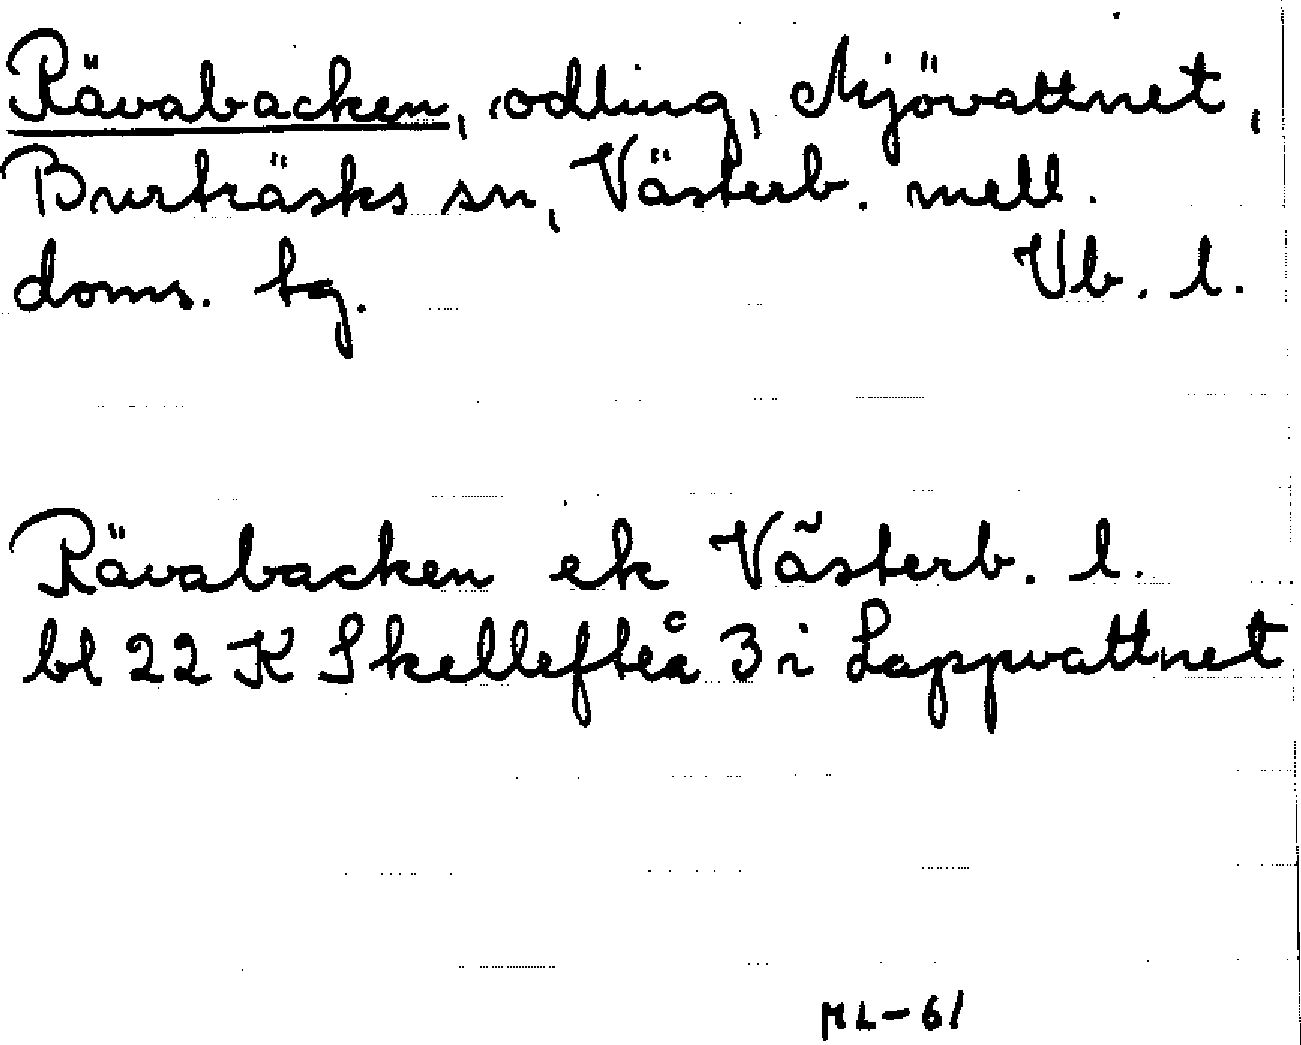 Rävabacken, odling, Mjövattnet,
Burträsks sn, Västerb. mell.
doms. tg. Vb. l.
Rävabacken ek Västerb. l.
bl 22 K Skellefteå 3 i Lappvattnet
ML-61